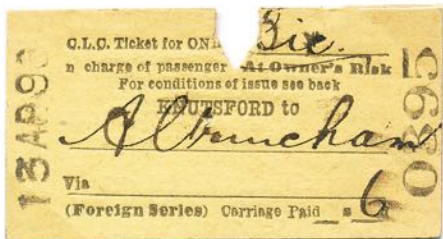 C.L.C. Ticket for ONE Bic.
n charge of passenger At Owner's Risk
For conditions of issue see back
KNUTSFORD to
Altrincham
Via
(Foreign Series) Carriage Paid s 6 d
13 AP. 93
0895